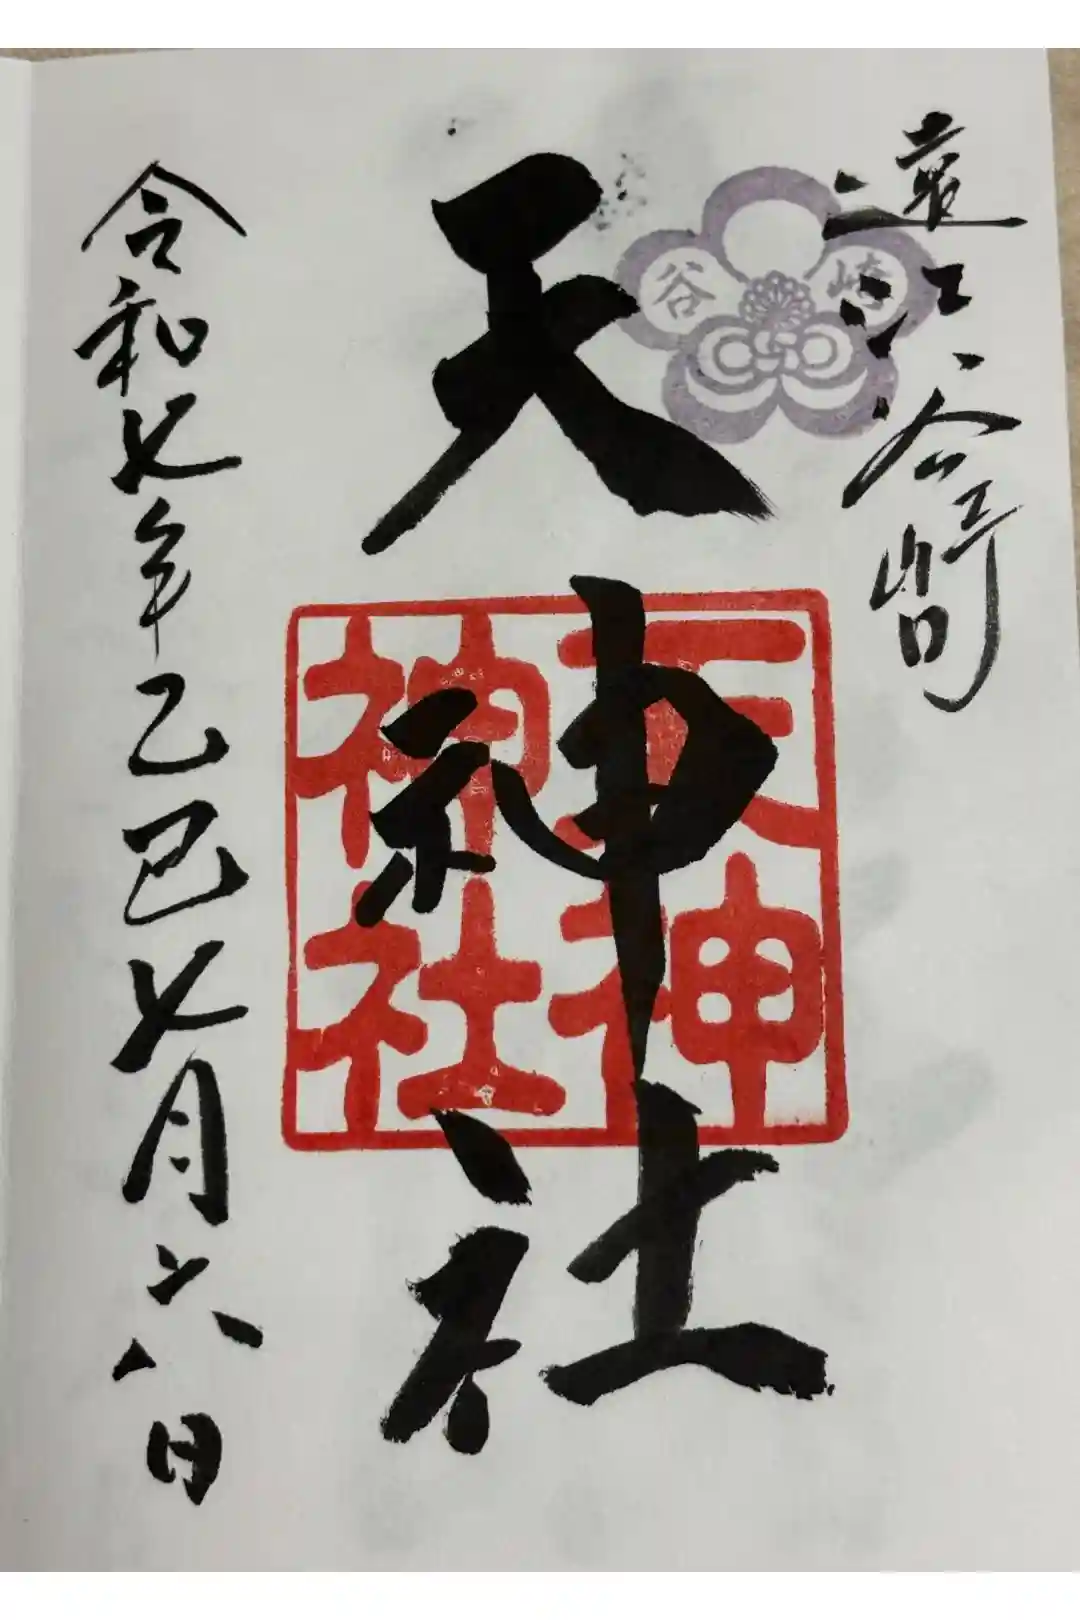 遠江谷崎
崎谷
天神社
天神神社
令和七年乙巳七月六日